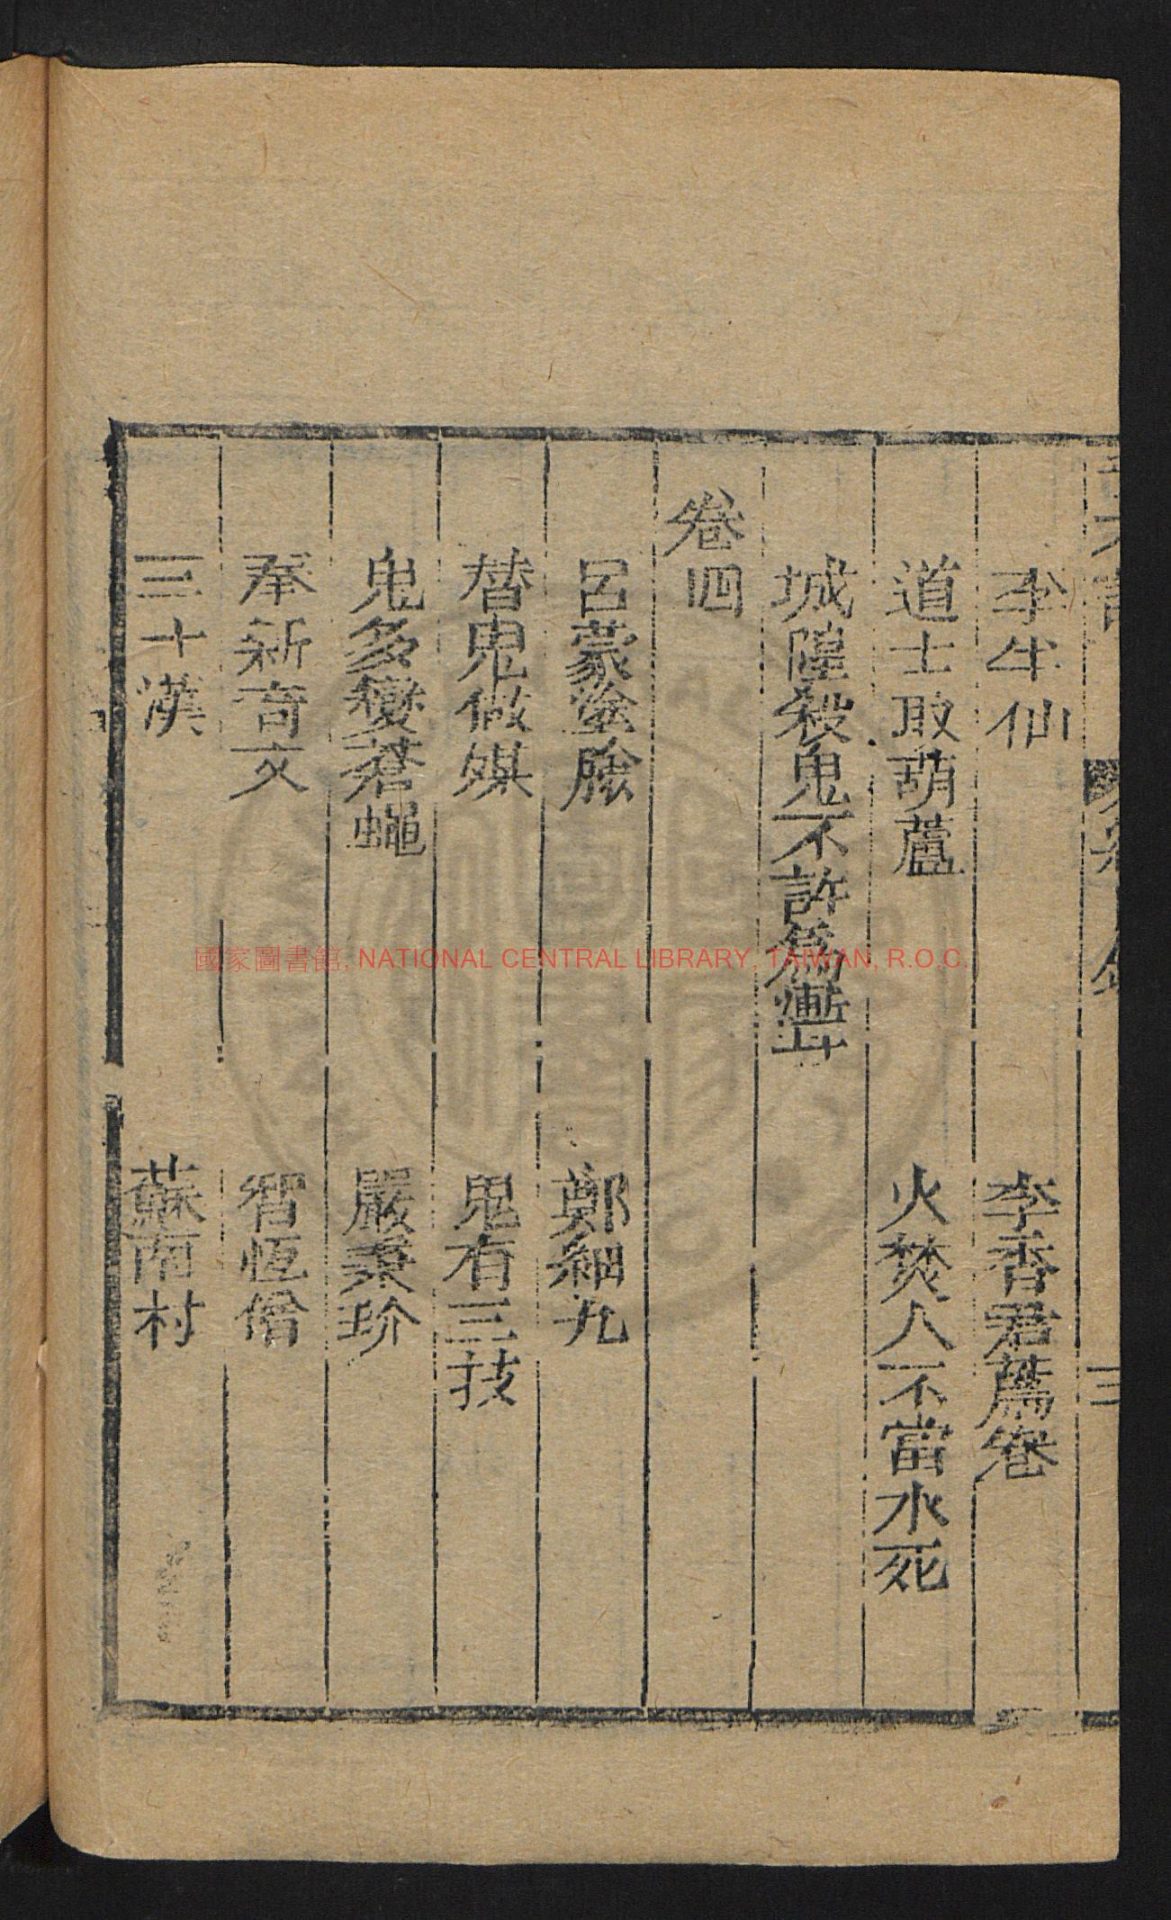 李半仙　李香君薦卷
道士取葫蘆　火焚人不當水死
城隍殺鬼不許爲聻
卷四
呂蒙塗臉　鄭細九
替鬼做媒　鬼有三技
鬼多變蒼蠅　嚴秉玠
奉新奇文　智恆僧
三斗漢　蘇南村
三
國家圖書館, NATIONAL CENTRAL LIBRARY, TAIWAN, R.O.C.